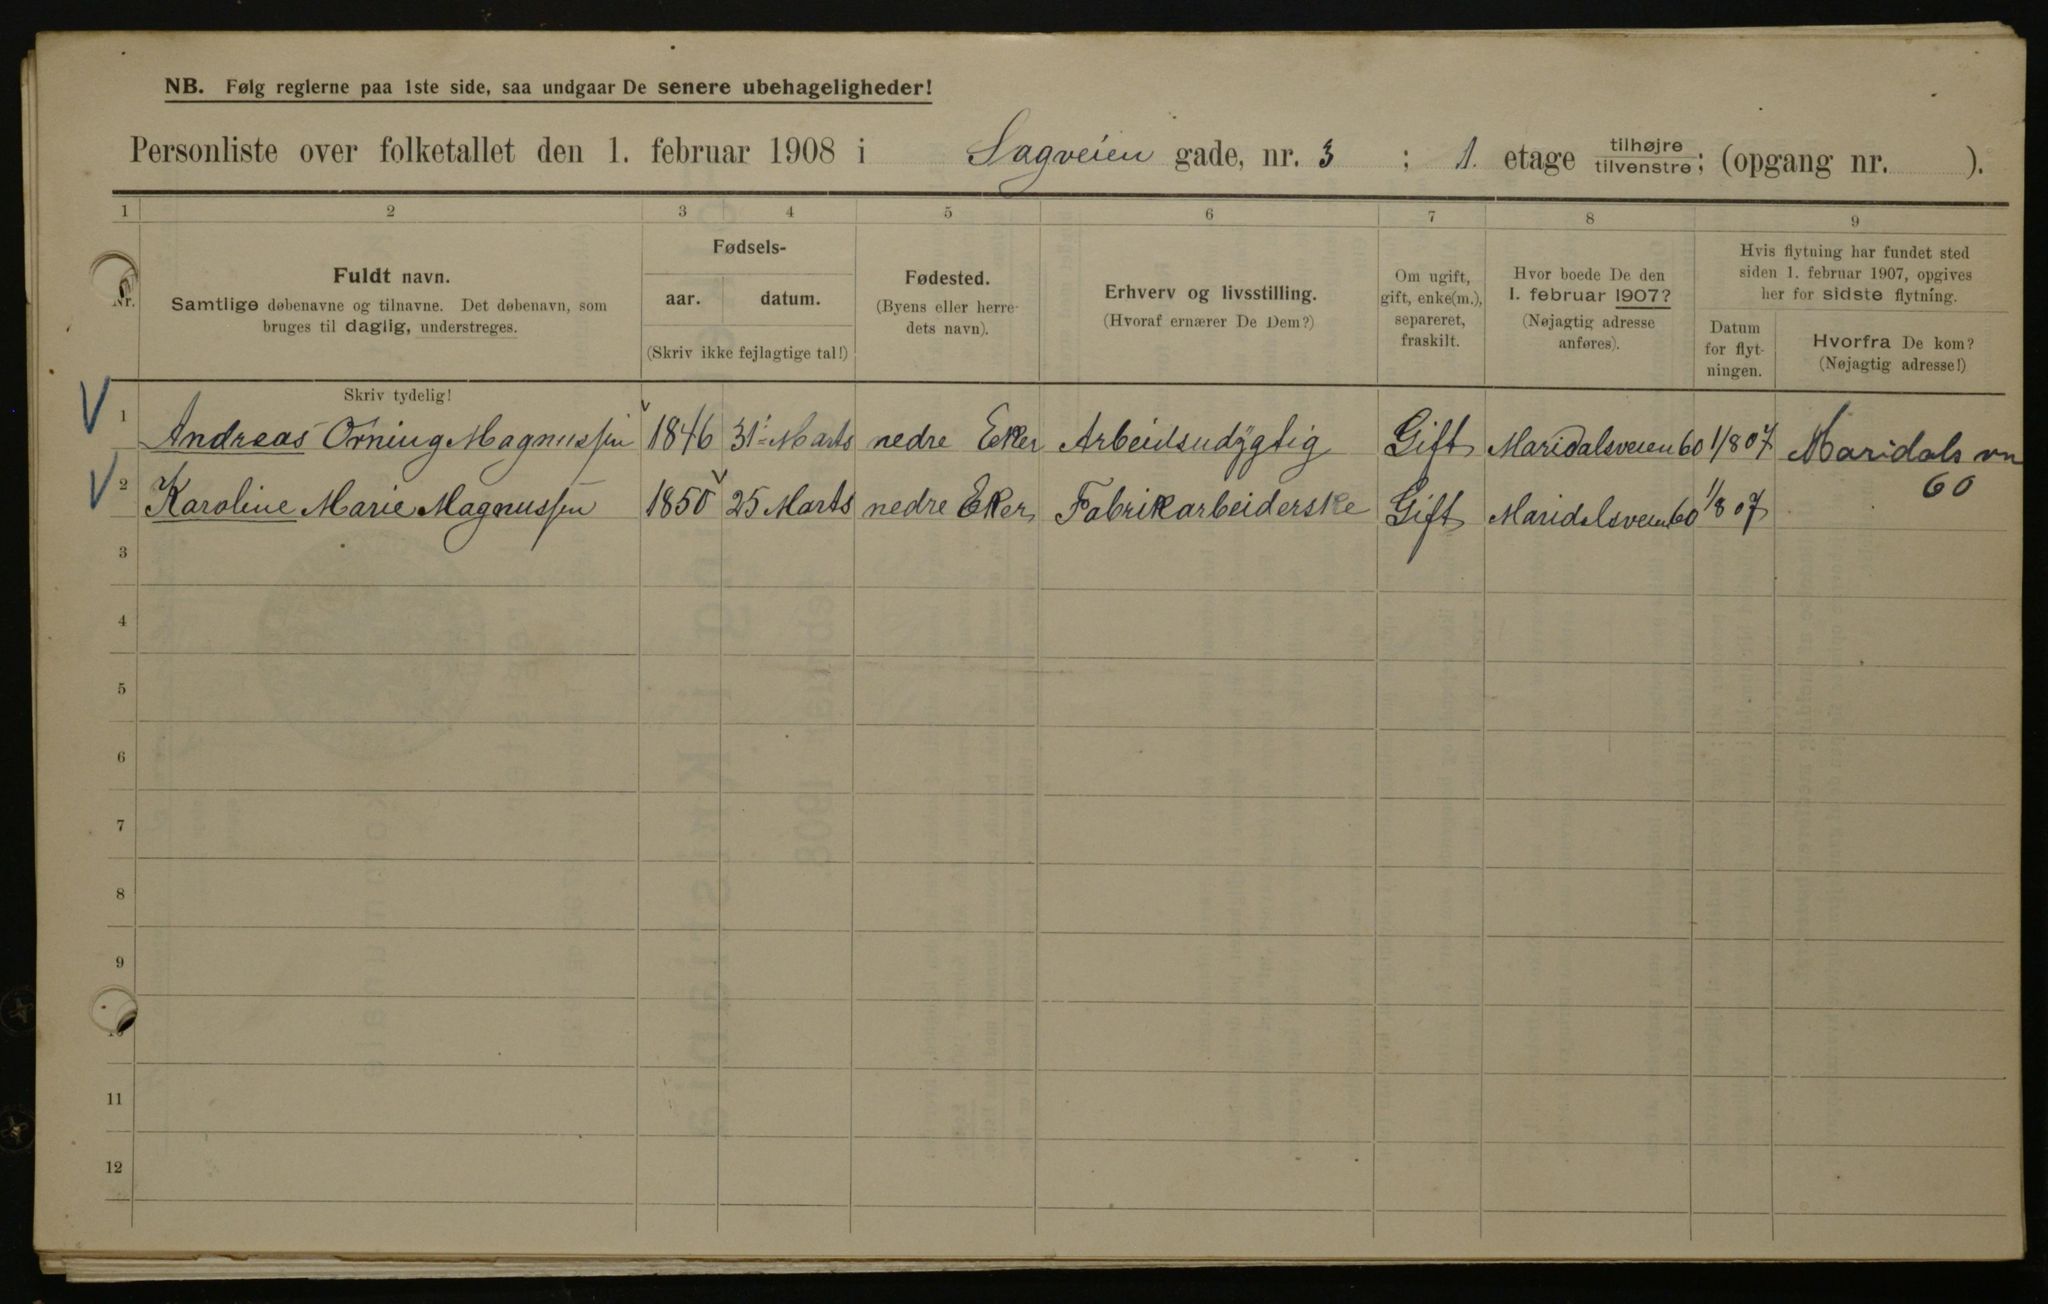 NB. Følg reglerne paa 1ste side, saa undgaar De senere ubehageligheder!
Personliste over folketallet den 1. februar 1908 i Sagveien gade, nr. 3 ; 1. etage tilhøjre/tilvenstre; (opgang nr. ).
1 2 3 4 5 6 7 8 9
Nr.
Fuldt navn.
Samtlige døbenavne og tilnavne. Det døbenavn, som
bruges til daglig, understreges.
Skriv tydelig!
Fødsels-
aar. datum.
(Skriv ikke fejlagtige tal!)
Fødested.
(Byens eller herre-
dets navn).
Erhverv og livsstilling.
(Hvoraf ernærer De Dem?)
Om ugift,
gift, enke(m.),
separeret,
fraskilt.
Hvor boede De den
1. februar 1907?
(Nøjagtig adresse
anføres).
Hvis flytning har fundet sted
siden 1. februar 1907, opgives
her for sidste flytning.
Datum
for flyt-
ningen.
Hvorfra De kom?
(Nøjagtig adresse!)
V 1 Andreas Orning Magnussen 1846 31 Marts nedre Eker Arbeidsudygtig Gift Maridalsveien 60 1/8 07 Maridalsvn
60
V 2 Karoline Marie Magnussen 1850 25 Marts nedre Eker Fabrikarbeiderske Gift Maridalsveien 60 1/8 07
3
4
5
6
7
8
9
10
11
12